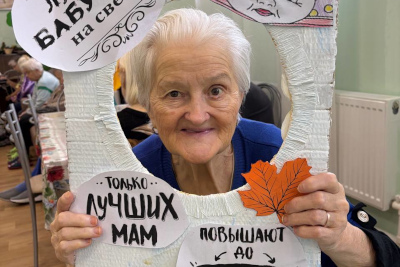 БАБУ
на све
ТОЛЬКО
ЛУЧШИХ
МАМ
ПОВЫШАЮТ
ДО